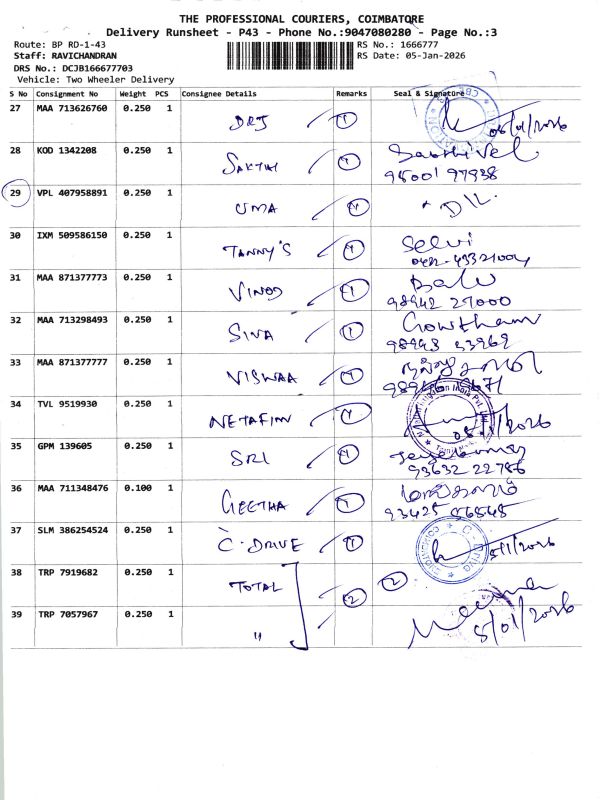 THE PROFESSIONAL COURIERS, COIMBATORE
Delivery Runsheet - P43 - Phone No.:9047080280 - Page No.:3
Route: BP RD-1-43
RS No.: 1666777
Staff: RAVICHANDRAN
RS Date: 05-Jan-2026
DRS No.: DCJB166677703
Vehicle: Two Wheeler Delivery
S No Consignment No Weight PCS Consignee Details Remarks Seal & Signature
27 MAA 713626760 0.250 1 DRJ 1
28 KOD 1342208 0.250 1 SAKTHI 1 Sakthivel
98001 97938
29 VPL 407958891 0.250 1 UMA 1
30 IXM 509586150 0.250 1 TANNY'S 1 Selvi
31 MAA 871377773 0.250 1 VINOD 1 Balu
98942 27000
32 MAA 713298493 0.250 1 SIVA 1 Gowtham
98943 53969
33 MAA 871377777 0.250 1 VISWAA 1
34 TVL 9519930 0.250 1 NETAFIM 1
35 GPM 139605 0.250 1 SRI 1
93632 22786
36 MAA 711348476 0.100 1 GEETHA 1
93425 56545
37 SLM 386254524 0.250 1 C-DRIVE 1 5/1/2026
38 TRP 7919682 0.250 1 TOTAL 2 2
39 TRP 7057967 0.250 1 " 5/01/2026